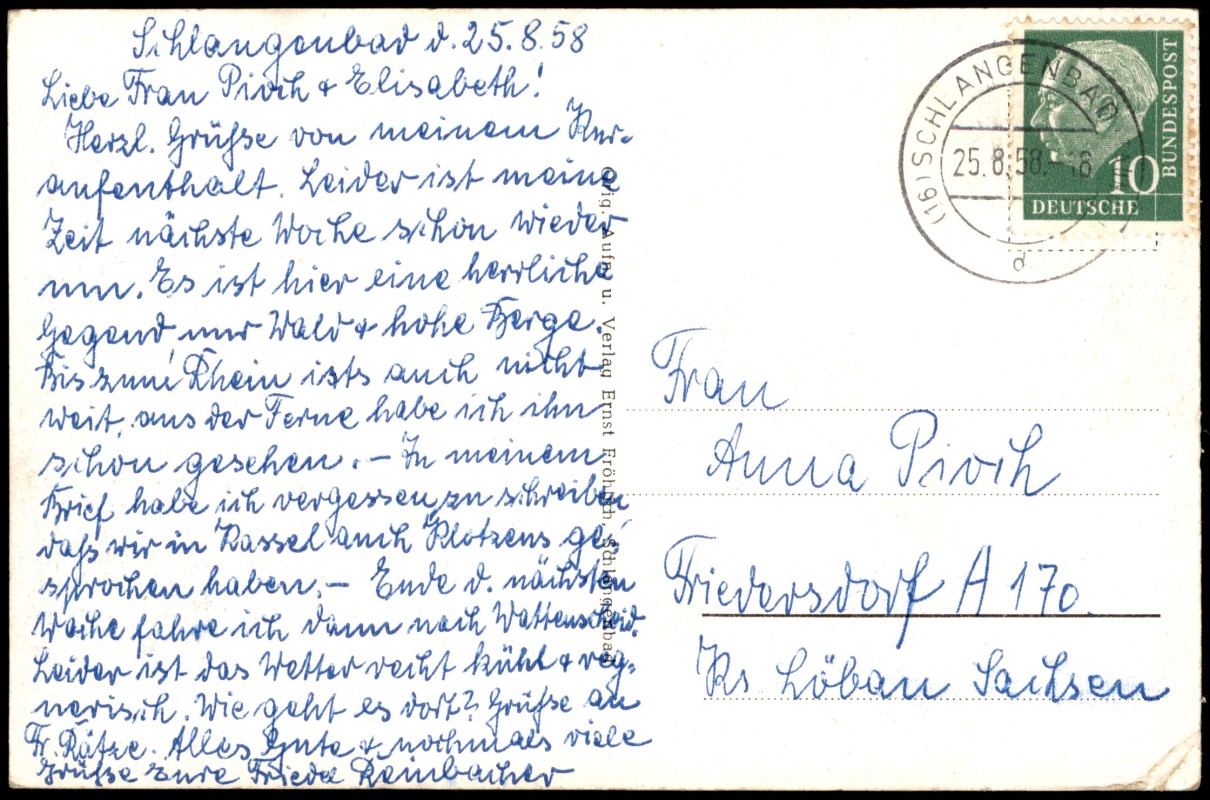 Schlangenbad d. 25.8.58
Liebe Frau Pioch & Elisabeth!
Herzl. Grüße von meinem Kur-
aufenthalt. Leider ist meine
Zeit nächste Woche schon wieder
um. Es ist hier eine herrliche
Gegend, nur Wald & hohe Berge.
Bis zum Rhein ists auch nicht
weit, aus der Ferne habe ich ihn
schon gesehen. – In meinem
Brief habe ich vergessen zu schreiben
daß wir in Kassel auch Klotzens ge-
sprochen haben. – Ende d. nächsten
Woche fahre ich dann nach Wattenscheid.
Leider ist das Wetter recht kühl & reg-
nerisch. Wie geht es dort? Grüße an
Fr. Rätze. Alles Gute & nochmals viele
Grüße Eure Frieda Reinbacher
Orig. Aufn. u. Verlag Ernst Fröhlich, Schlangenbad
(16) SCHLANGENBAD
25.8.58.-18
d
BUNDESPOST
10
DEUTSCHE
Frau
Anna Pioch
Friedersdorf A 170.
Krs Löbau Sachsen